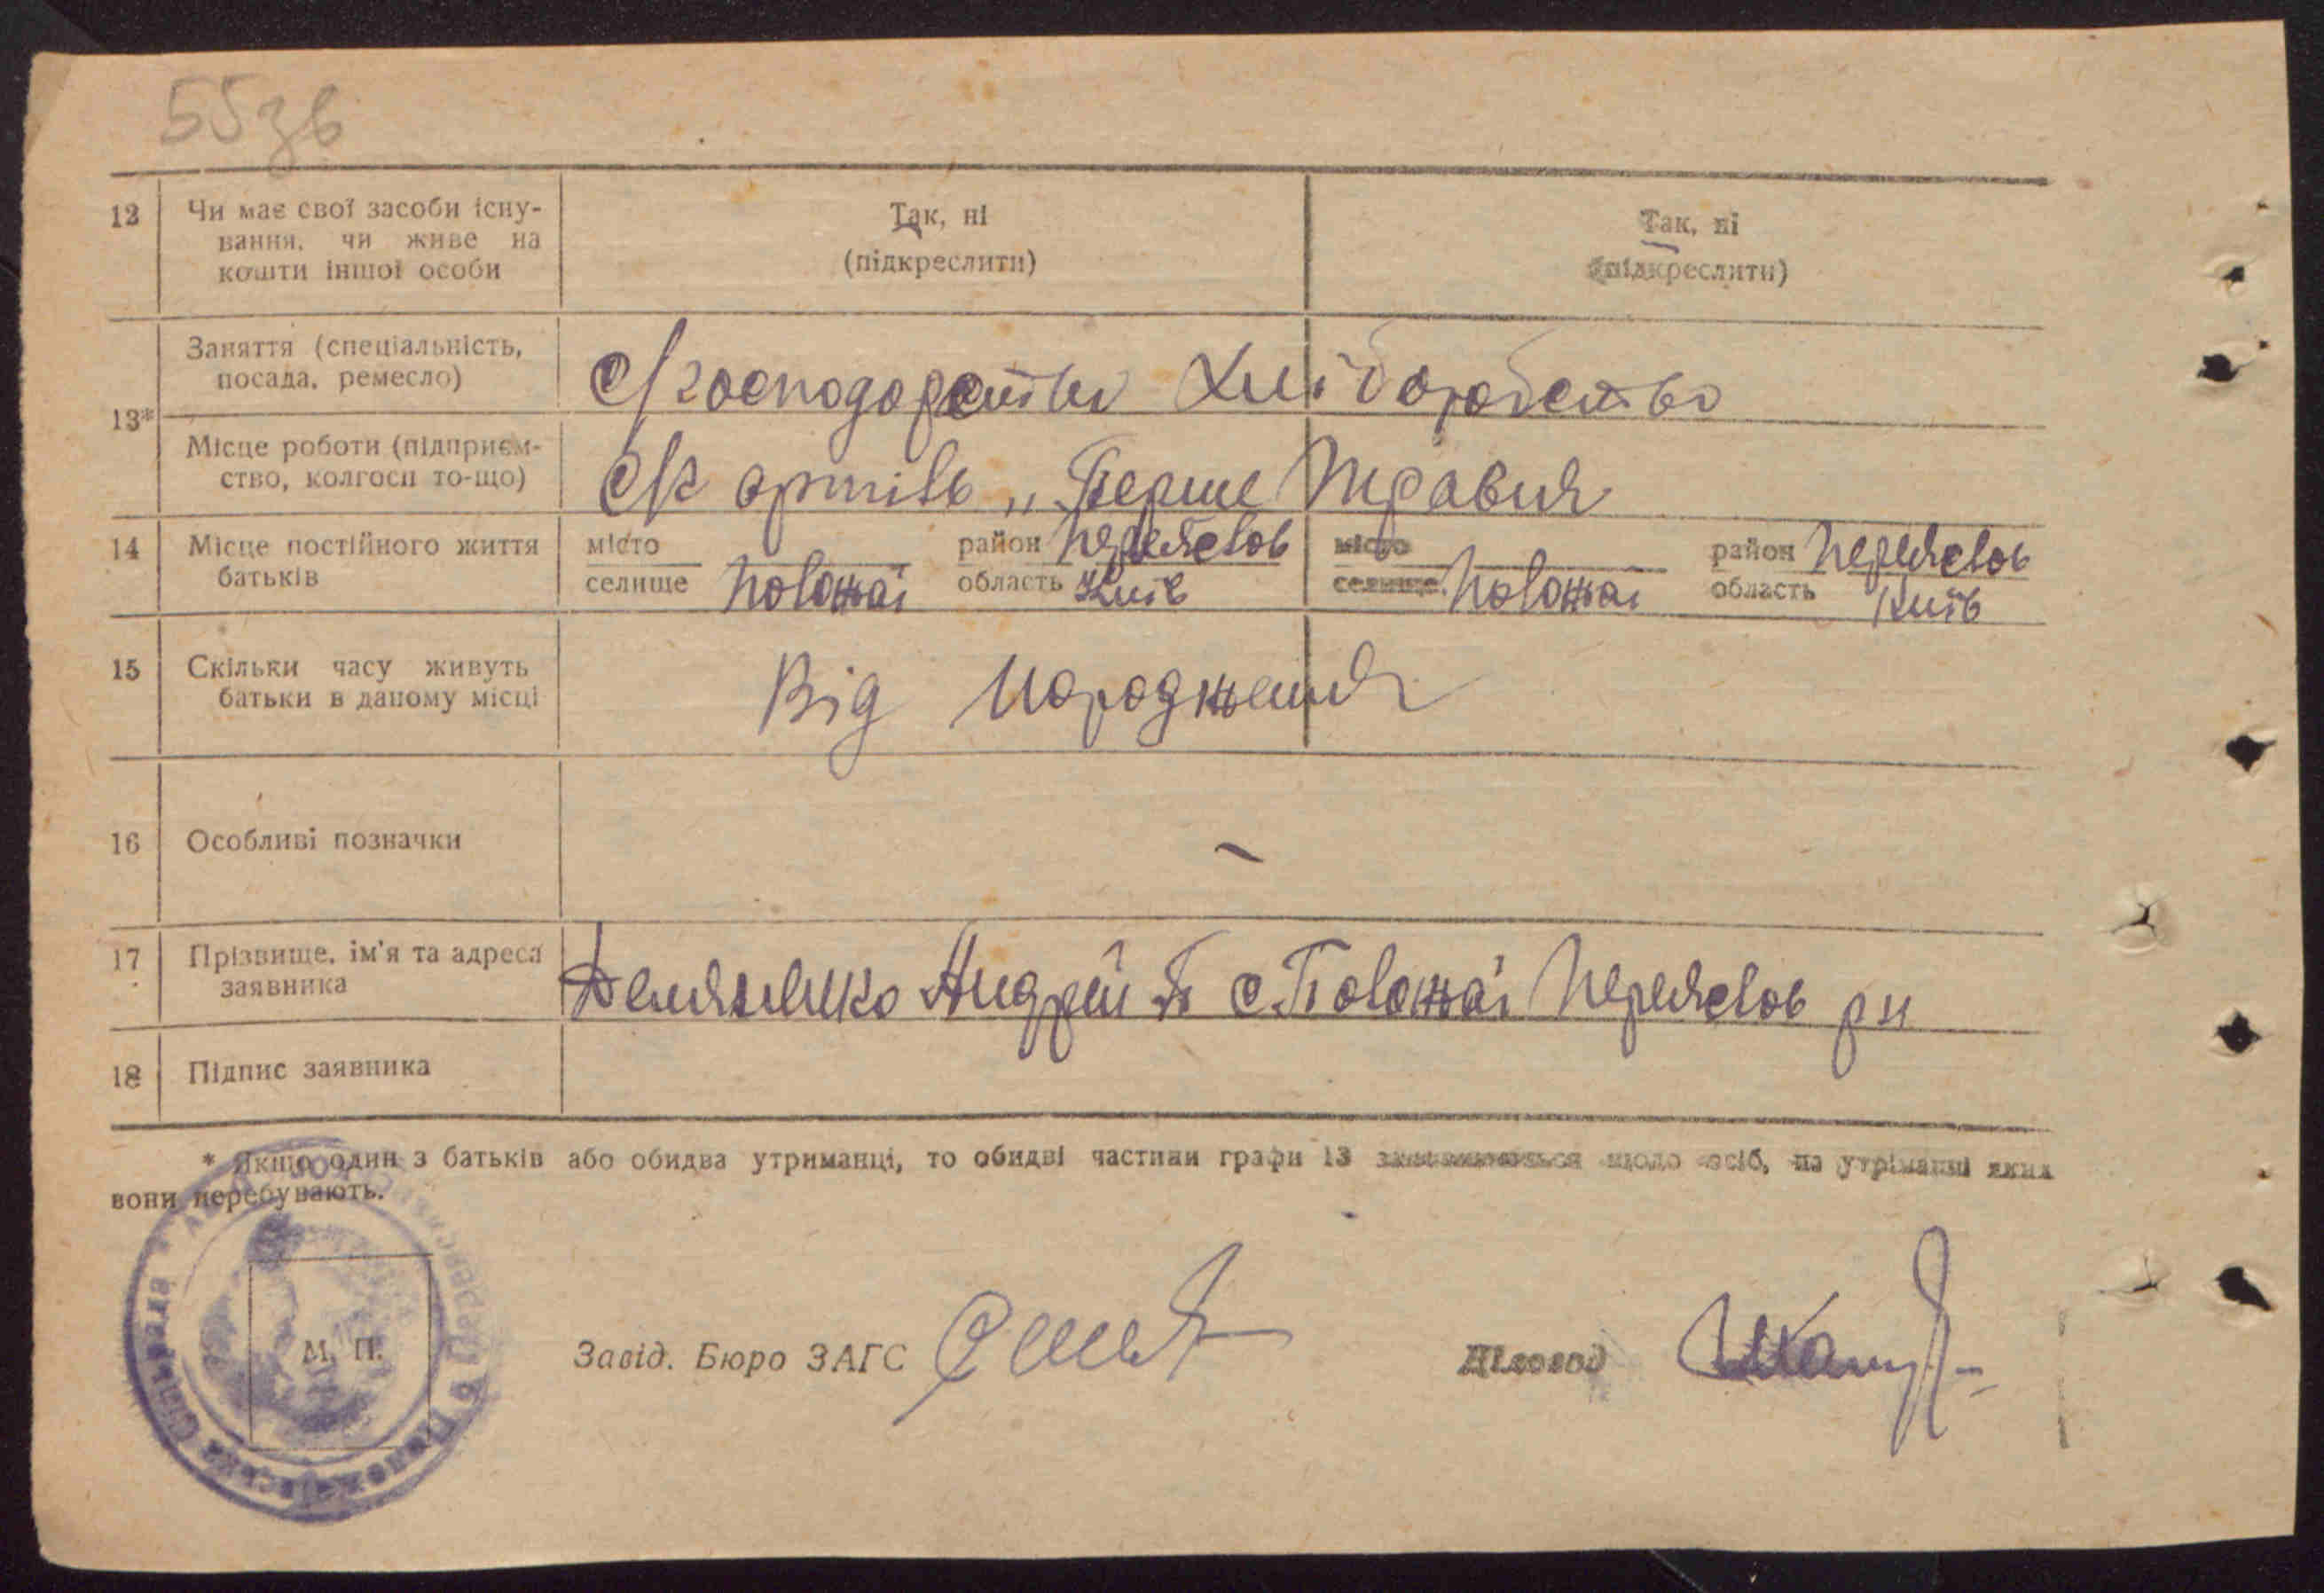 55зв
12 Чи має свої засоби існу-
вання, чи живе на
кошти іншої особи
Так, ні
(підкреслити)
Так, ні
(підкреслити)
13* Заняття (спеціальність,
посада, ремесло)
С/господарство Хліборобство
Місце роботи (підприєм-
ство, колгосп то-що)
артіль „Перше травня
14 Місце постійного життя
батьків
місто
селище Положаї
район Переяслов
область Київ
місто
селище Положаї
район Переяслов
область Київ
15 Скільки часу живуть
батьки в даному місці
Від народження
16 Особливі позначки
–
17 Прізвище, ім'я та адреса
заявника
Андрій П с. Положаї Переяслов рн
18 Підпис заявника
* Якщо один з батьків або обидва утриманці, то обидві частини графи 13 щодо осіб, на утриманні яких
вони перебувають.
М. П.
Завід. Бюро ЗАГС
Діловод